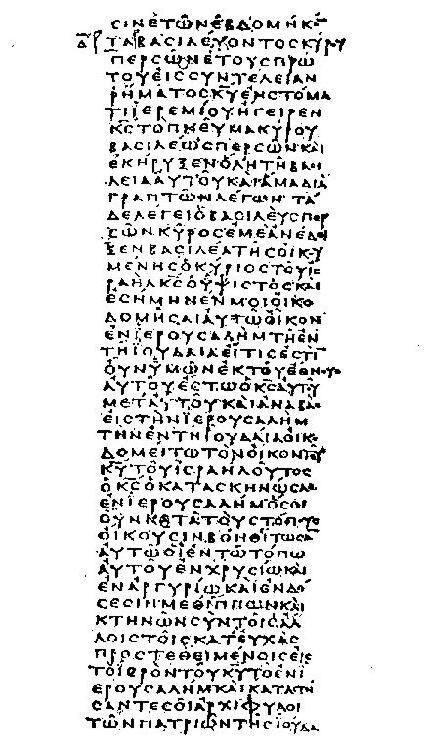 ϹΙΝΕΤΩΝΕΒΔΟΜΗΚΟΝ
ΤΑΒΑϹΙΛΕΥΟΝΤΟϹΚΥΡΟΥ
ΠΕΡϹΩΝΕΤΟΥϹΠΡΩ
ΤΟΥΕΙϹϹΥΝΤΕΛΕΙΑΝ
ΡΗΜΑΤΟϹΚ̅Υ̅ΕΝϹΤΟΜΑ
ΤΙΙΕΡΕΜΙΟΥΗΓΕΙΡΕΝ
Κ̅Ϲ̅ΤΟΠΝΕΥΜΑΚΥΡΟΥ
ΒΑϹΙΛΕΩϹΠΕΡϹΩΝΚΑΙ
ΕΚΗΡΥΞΕΝΟΛΗΤΗΒΑϹΙ
ΛΕΙΑΑΥΤΟΥΚΑΙΑΜΑΔΙΑ
ΓΡΑΠΤΩΝΛΕΓΩΝΤΑ
ΔΕΛΕΓΕΙΟΒΑϹΙΛΕΥϹΠΕΡ
ϹΩΝΚΥΡΟϹΕΜΕΑΝΕΔΕΙ
ΞΕΝΒΑϹΙΛΕΑΤΗϹΟΙΚΟΥ
ΜΕΝΗϹΟΚΥΡΙΟϹΤΟΥΙϹ
ΡΑΗΛΚ̅Ϲ̅ΟΥΨΙϹΤΟϹΚΑΙ
ΕϹΗΜΗΝΕΝΜΟΙΟΙΚΟ
ΔΟΜΗϹΑΙΑΥΤΩΟΙΚΟΝ
ΕΝΙΕΡΟΥϹΑΛΗΜΤΗΕΝ
ΤΗΙΟΥΔΑΙΑΕΙΤΙϹΕϹΤΙΝ
ΟΥΝΥΜΩΝΕΚΤΟΥΕΘΝΟΥϹ
ΑΥΤΟΥΕϹΤΩΟΚ̅Ϲ̅ΑΥΤΟΥ
ΜΕΤΑΥΤΟΥΚΑΙΑΝΑΒΑϹ
ΕΙϹΤΗΝΙΕΡΟΥϹΑΛΗΜ
ΤΗΝΕΝΤΗΙΟΥΔΑΙΑΟΙΚΟ
ΔΟΜΕΙΤΩΤΟΝΟΙΚΟΝΤΟΥ
Κ̅Υ̅ΤΟΥΙϹΡΑΗΛΟΥΤΟϹ
ΟΚ̅Ϲ̅ΟΚΑΤΑϹΚΗΝΩϹΑϹ
ΕΝΙΕΡΟΥϹΑΛΗΜΟϹΟΙ
ΟΥΝΚΑΤΑΤΟΥϹΤΟΠΟΥϹ
ΟΙΚΟΥϹΙΝΒΟΗΘΕΙΤΩϹΑΝ
ΑΥΤΩΟΙΕΝΤΩΤΟΠΩ
ΑΥΤΟΥΕΝΧΡΥϹΙΩΚΑΙ
ΕΝΑΡΓΥΡΙΩΚΑΙΕΝΔΟ
ϹΕϹΙΝΜΕΘΙΠΠΩΝΚΑΙ
ΚΤΗΝΩΝϹΥΝΤΟΙϹΑΛ
ΛΟΙϹΤΟΙϹΚΑΤΕΥΧΑϹ
ΠΡΟϹΤΕΘΕΙΜΕΝΟΙϹΕΙϹ
ΤΟΙΕΡΟΝΤΟΥΚ̅Υ̅ΤΟΕΝΙ
ΕΡΟΥϹΑΛΗΜΚΑΙΚΑΤΑϹΤΗ
ϹΑΝΤΕϹΟΙΑΡΧΙΦΥΛΟΙ
ΤΩΝΠΑΤΡΙΩΝΤΗϹΙΟΥΔΑ